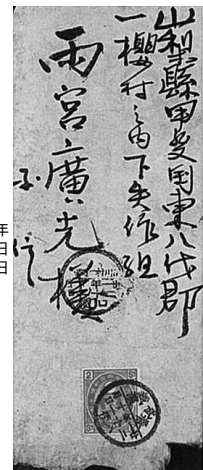 山梨縣甲斐国東八代郡
一櫻村之内下矢作組
雨宮廣光様
年
日
日